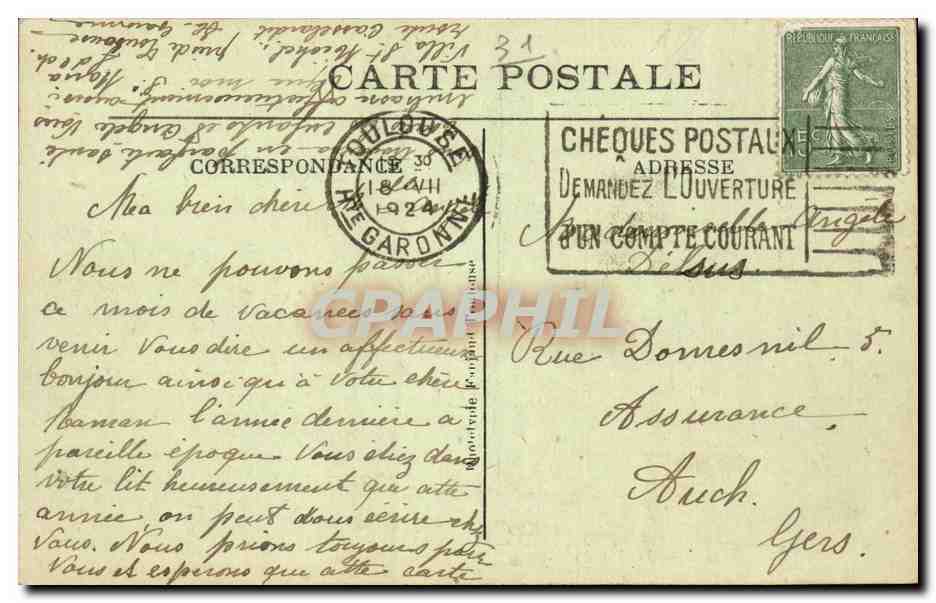 CARTE POSTALE
CORRESPONDANCE
ADRESSE
31
RÉPUBLIQUE FRANÇAISE
15c
TOULOUSE
30
18 VII
1924
Hte GARONNE
CHÈQUES POSTAUX
DEMANDEZ L'OUVERTURE
D'UN COMPTE COURANT
Ma bien chère
Nous ne pouvons passer
ce mois de vacances sans
venir vous dire un affectueux
bonjour ainsi qu'à votre chère
Maman l'année dernière à
pareille époque vous étiez dans
votre lit heureusement que cette
année on peut vous écrire chez
vous. Nous prions toujours pour
vous et esperons que cette carte
en parfaite santé
enfants et Angèle vous
affectueusement
Villa St Michel
Route
Mademoiselle Angèle
Delsus.
Rue Domesnil 5.
Assurance
Auch.
Gers.
Phototypie Toulouse
CPAPHIL